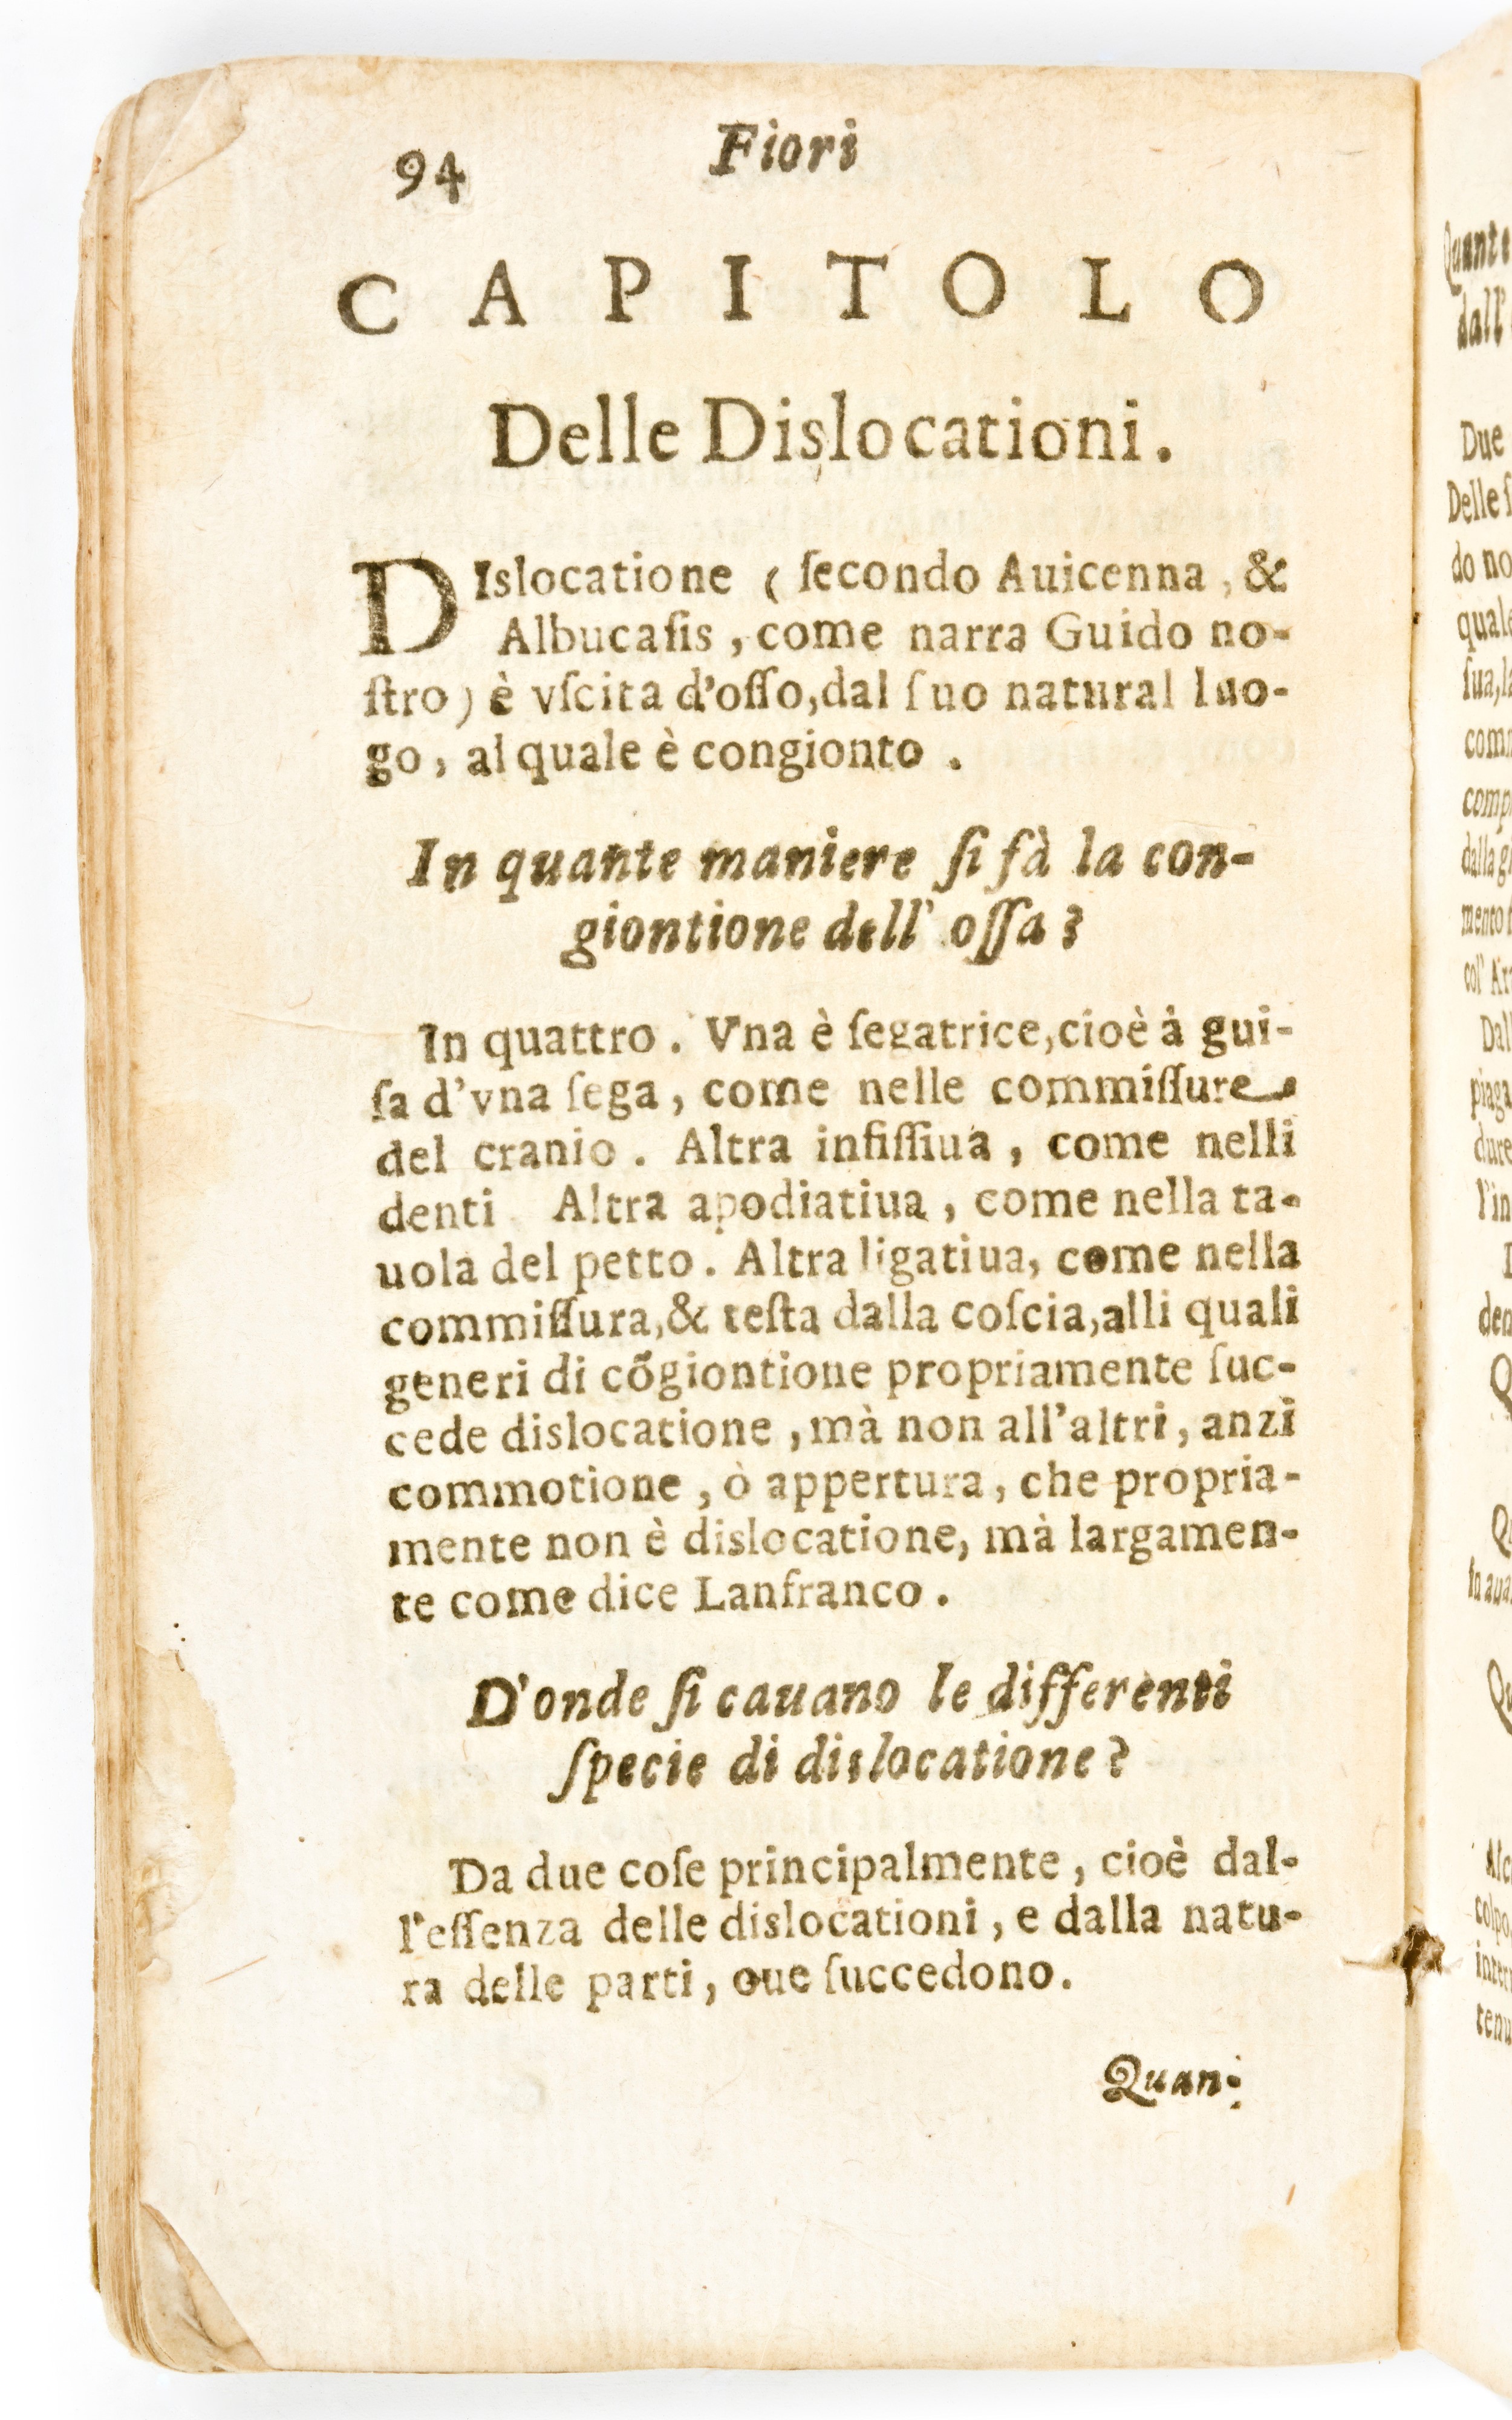 94 Fiori
CAPITOLO
Delle Dislocationi.
DIslocatione ( ſecondo Auicenna, &
Albucaſis, come narra Guido no-
ſtro) è vſcita d'oſſo, dal ſuo natural luo-
go, al quale è congionto.
In quante maniere ſi fà la con-
giontione dell' oſſa?
In quattro. Vna è ſegatrice, cioè à gui-
ſa d'vna ſega, come nelle commiſſure
del cranio. Altra infiſſiua, come nelli
denti Altra apodiatiua, come nella ta-
uola del petto. Altra ligatiua, come nella
commiſſura, & teſta dalla coſcia, alli quali
generi di cõgiontione propriamente ſuc-
cede dislocatione, mà non all'altri, anzi
commotione, ò appertura, che propria-
mente non è dislocatione, mà largamen-
te come dice Lanfranco.
D'onde ſi cauano le differenti
ſpecie di dislocatione?
Da due coſe principalmente, cioè dal-
l'eſſenza delle dislocationi, e dalla natu-
ra delle parti, oue ſuccedono.
Quan-
Quante
dall'
Due
Delle
do no
quale
ſua, la
dalla
mento
Dal
piaga
dure
l'in
den